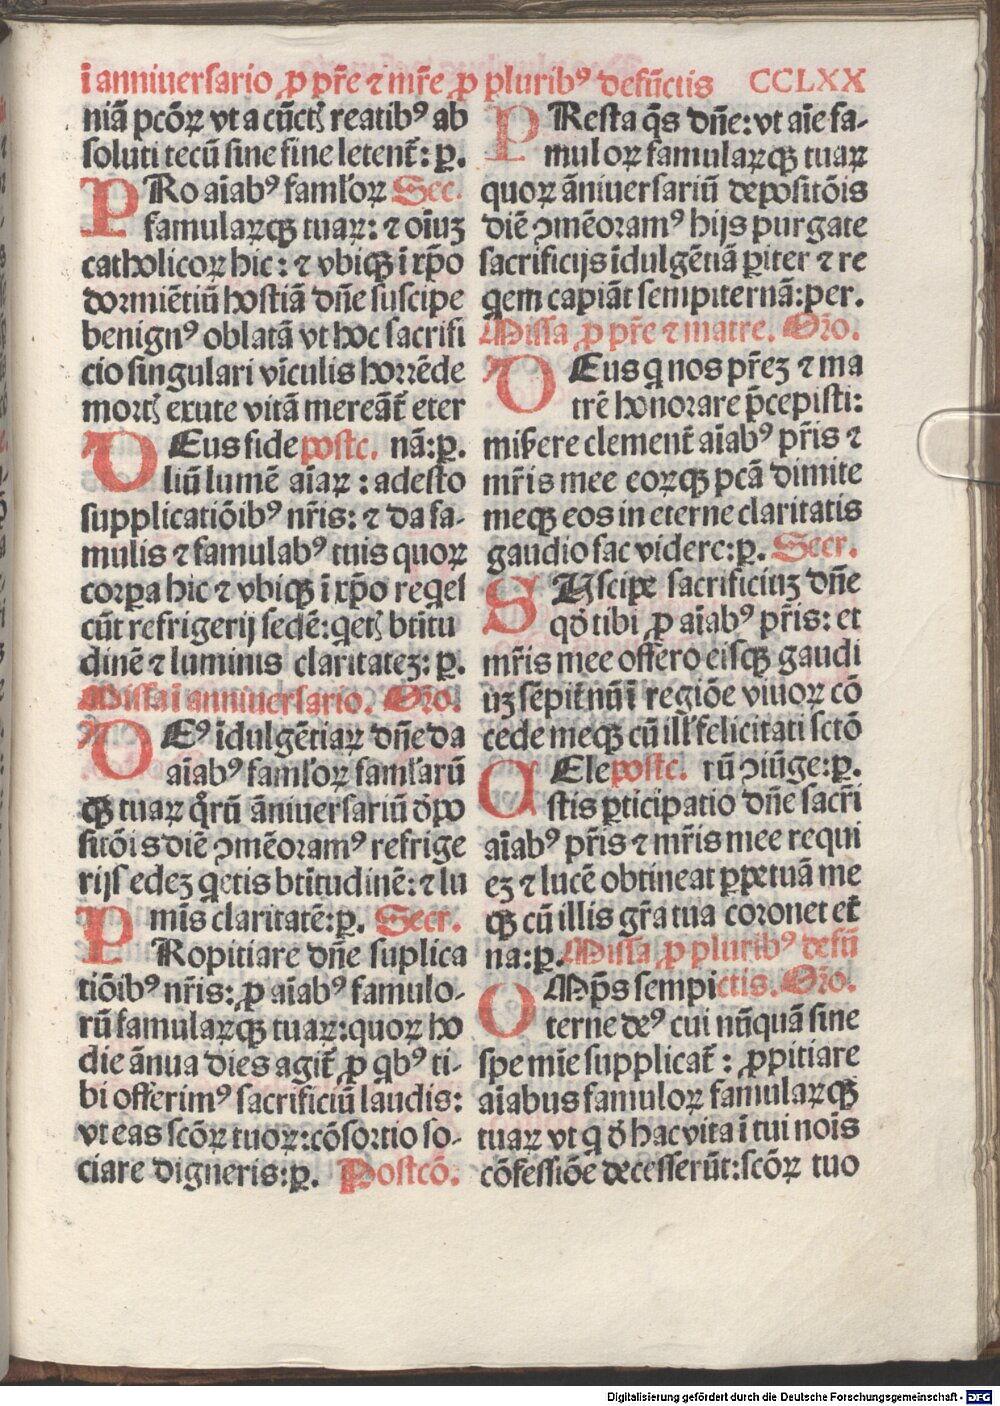 ī anniuersario ꝓ pr̄e ⁊ mr̄e ꝓ pluribꝰ defūctis CCLXX
niā pcōꝝ vt a cūctꝭ reatibꝰ ab
soluti tecū sine fine letent̄: ꝑ.
PRo aīabꝰ famloꝝ Sec.
famularꝝqꝫ tuaꝝ: ⁊ oīuꝫ
catholicoꝝ hic: ⁊ vbiqꝫ ī xp̄o
dormiētiū hostiā dn̄e suscipe
benignꝰ oblatā vt hoc sacrifi
cio singulari vīculis horrēde
mortꝭ exute vitā mereāt̄ eter
DEus fide postc. nā: ꝑ.
liū lumē aīaꝝ : adesto
supplicatiōibꝰ nr̄is: ⁊ da fa-
mulis ⁊ famulabꝰ tuis quoꝝ
corꝑa hic ⁊ vbiqꝫ ī xp̄o reqes
cūt refrigerij sedē: qetꝭ btītu
dinē ⁊ luminis claritateꝫ: ꝑ.
Missa ī anniuersario. Oro.
DEꝰ īdulgētiaꝝ dn̄e da
aīabꝰ famloꝝ famlarū
qꝫ tuaꝝ qͦrū āniuersariū dꝑo
sitōis diē ꝯmēoramꝰ refrige
rijs edeꝫ qetis btītudinē: ⁊ lu
mīs claritatē: ꝑ. Secr.
PRopitiare dn̄e suplica
tiōibꝰ nr̄is: ꝓ aīabꝰ famulo-
rū famularꝝqꝫ tuaꝝ: quoꝝ ho
die ānua dies agit̄ ꝓ qbꝰ ti-
bi offerimꝰ sacrificiū laudis:
vt eas scōꝝ tuoꝝ: cōsortio so-
ciare digneris: ꝑ. Postcō.
PResta q̄s dn̄e: vt aīe fa-
muloꝝ famularꝝqꝫ tuaꝝ
quoꝝ āniuersariū depositōis
diē ꝯmēoramꝰ hijs purgate
sacrificijs īdulgētiā ꝑiter ⁊ re
qem capiāt sempiternā: per.
Missa ꝓ pr̄e ⁊ matre. Oro.
DEus q nos pr̄eꝫ ⁊ ma
trē honorare p̄cepisti:
misere clement̄ aīabꝰ pr̄is ⁊
mr̄is mee eorꝝqꝫ pcā dimite
meqꝫ eos in eterne claritatis
gaudio fac videre: ꝑ. Secr.
SUscipe sacrificiuꝫ dn̄e
qd̄ tibi ꝓ aīabꝰ pr̄is: et
mr̄is mee offero eisqꝫ gaudi
uꝫ sēpit̄nū ī regiōe viuoꝝ cō
cede meqꝫ cū ill' felicitati sctō
CEle postc. rū ꝯiūge: ꝑ.
stis ꝑticipatio dn̄e sacr̄i
aīabꝰ pr̄is ⁊ mr̄is mee requi
eꝫ ⁊ lucē obtineat ꝑpetuā me
qꝫ cū illis gr̄a tua coronet et̄
na: ꝑ. Missa ꝓ pluribꝰ defū
OMp̄s sempi ctis. Oro.
terne deꝰ cui nūquā sine
spe mīe supplicat̄ : ꝓpitiare
aīabus famuloꝝ famularꝝqꝫ
tuaꝝ vt q d̄ hac vita ī tui noīs
cōfessiōe decesserūt: scōꝝ tuo
Digitalisierung gefördert durch die Deutsche Forschungsgemeinschaft - DFG